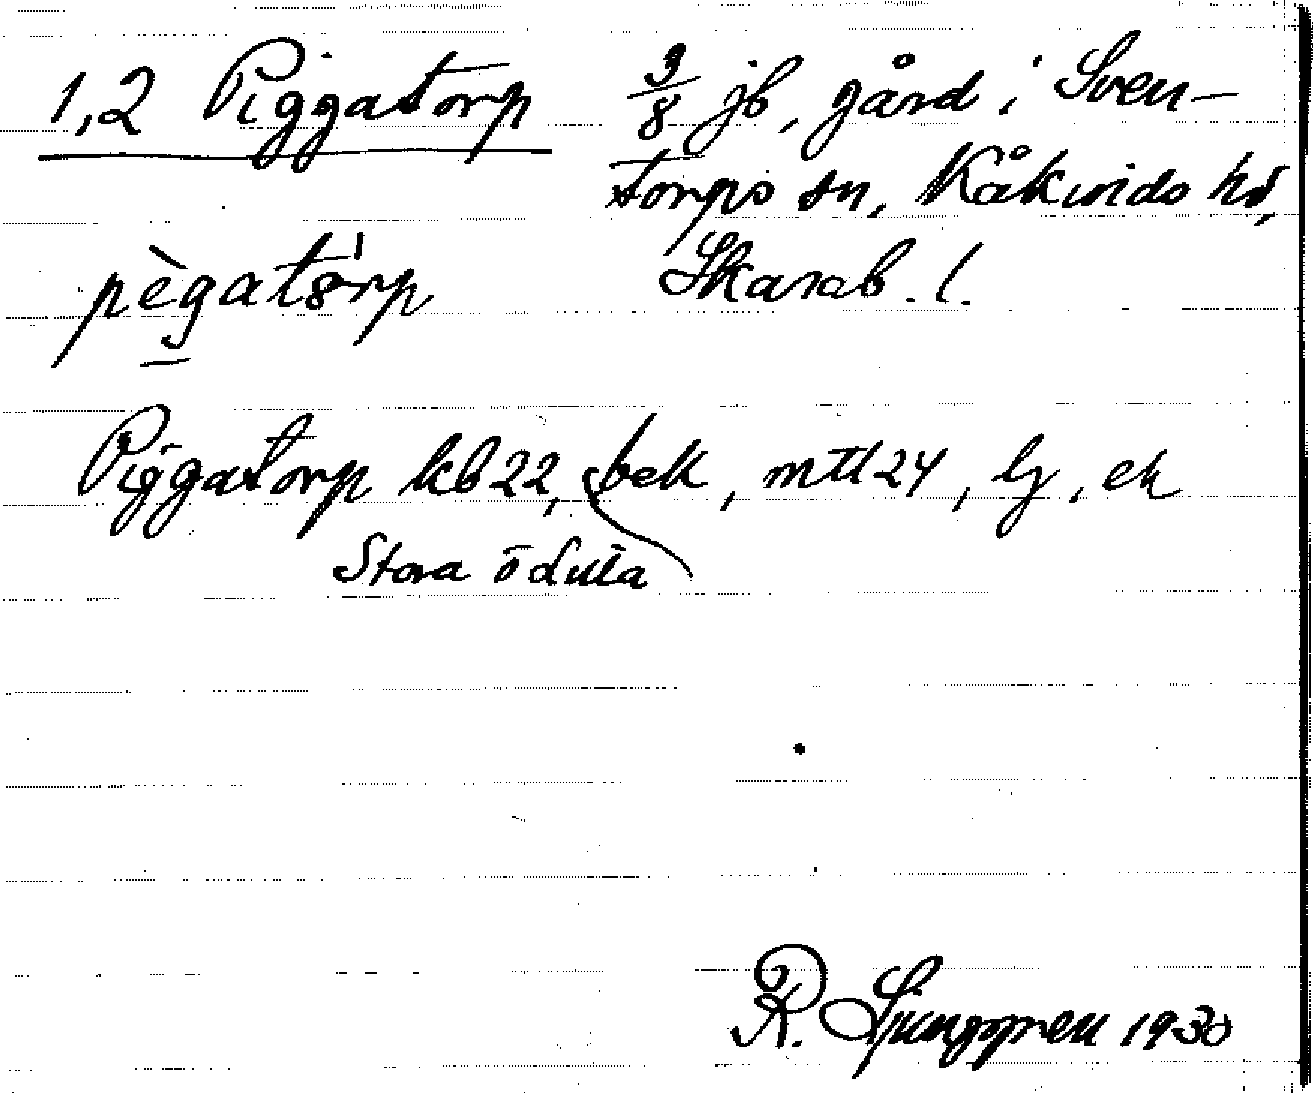 1,2 Piggatorp 3/8 jb, gård i Sven-
torps sn, Kåkinds hd,
pègatórp Skarab. l.
Piggatorp kb22, bek, mtl24, lj, ek
Stora ödula
R. Ljunggren 1930